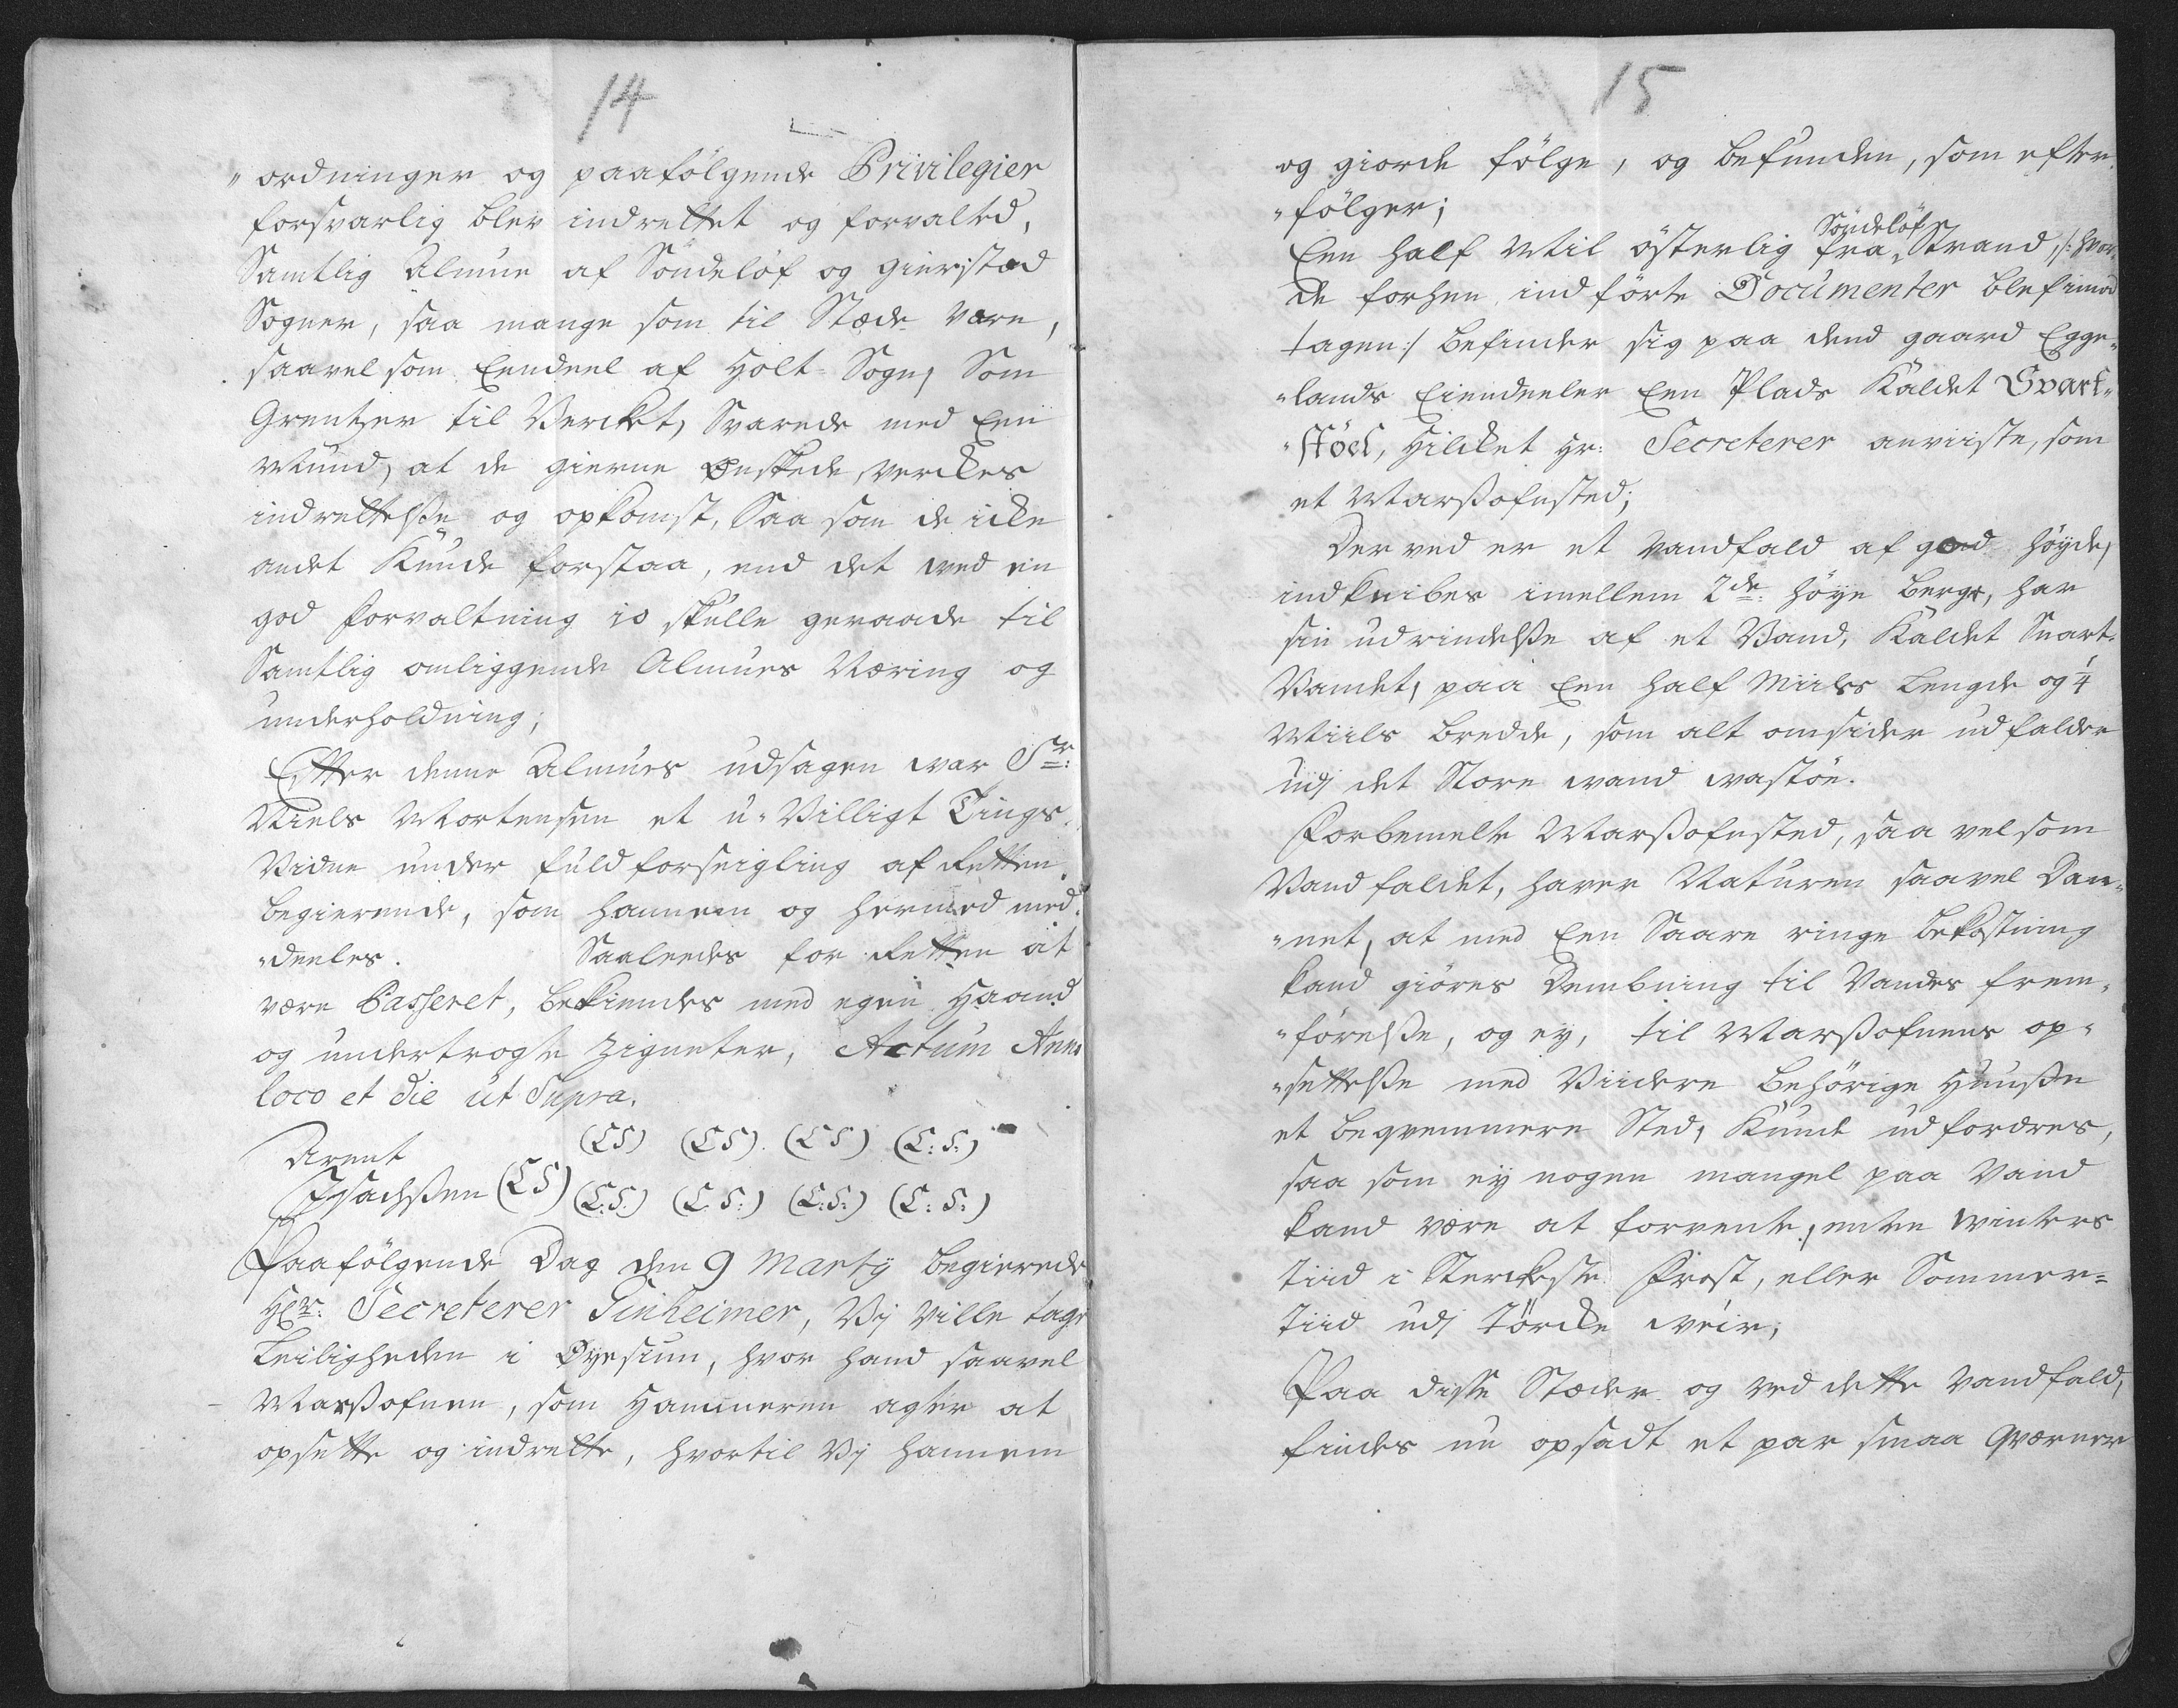 14
„ordninger og paafölgende Privilegier
forsvarlig blev indrettet og forvalted,
Samtlig Almue af Söndeløf og Gierstad
Sogner, saa mange som til Stæde vare,
saavelsom Eendeel af Holt-Sogn, Som
Grentzer til Verket, Svarede med Een
Mund, at de gierne Ønskede, verckes
indrettelße og opkomst, Saa som de icke
andet Kunde forstaa, end det ved en
god forvaltning io skulle geraade til
Samtlig omliggende Almues Næring og
underholdning;
Efter denne Almues udsagen var Sr:
Niels Mortensen et u-Villigt Tings
Vidne under fuld forseigling af Retten
begierende, som hannem og hermed med-
„deeles. Saaleedes for Retten at
være Passeret, bekiendes med egen Haand
og undertrøgte Zigneter, Actum Anno
loco et die ut Supra.
Arent
Jsachßen (LS) (LS) (LS) (LS) (L:S:)
(L:S:) (L S:) (L:S:) (L:S:)
Paafölgende Dag den 9 Marty begierede
Hr: Secreterer Tinheimer, Vj Ville tage
Leiligheden i Øyesiun, hvor hand saavel
Marßofnen, som Hammeren agter at
opsette og indrette, hvortil Vj hannem
15
og giorde fölge, og befunden, som efter
„fölger;
Een half Miil österlig fra Söndeløfs Strand, /: hvor
de forhen indförte Documenter blef imod
tagen:/ befinder sig paa dend gaard Egge„
„lands Eiendeeler Een Plads Kaldet Svart„
„stöel, Hilcket Hr: Secreterer anviiste, som
et Marßofnsted;
Der ved er et Vandfald af goed höyde,
indknibes imellem 2de: höye berge, har
sin udrindelße af et Vand, Kaldet Svart-
Vandet, paa Een half Miils Lengde og 1/4
Miils bredde, som alt omsider udfalder
udj det Store vand vastöe.
Forbemelte Marßofnsted, saa vel som
Vandfaldet, haver Naturen saavel Dan„
„net, at med Een Saare ringe bekostning
kand giöres Dembning til Vandes frem„
„förelße, og ey, til Marßofnens op„
„settelße med Viidere behörige Huuße
et beqvemmere Sted, Kunde udfordres,
saa som ey nogen mangel paa Vand
kand være at forvente, enten Winters
tiid i Sterckeste Frost, eller Sommer-
tiid udj törcke Veir,
Paa disse Stæder og ved dette Vandfald,
findes nu opsadt et par smaa Qværner